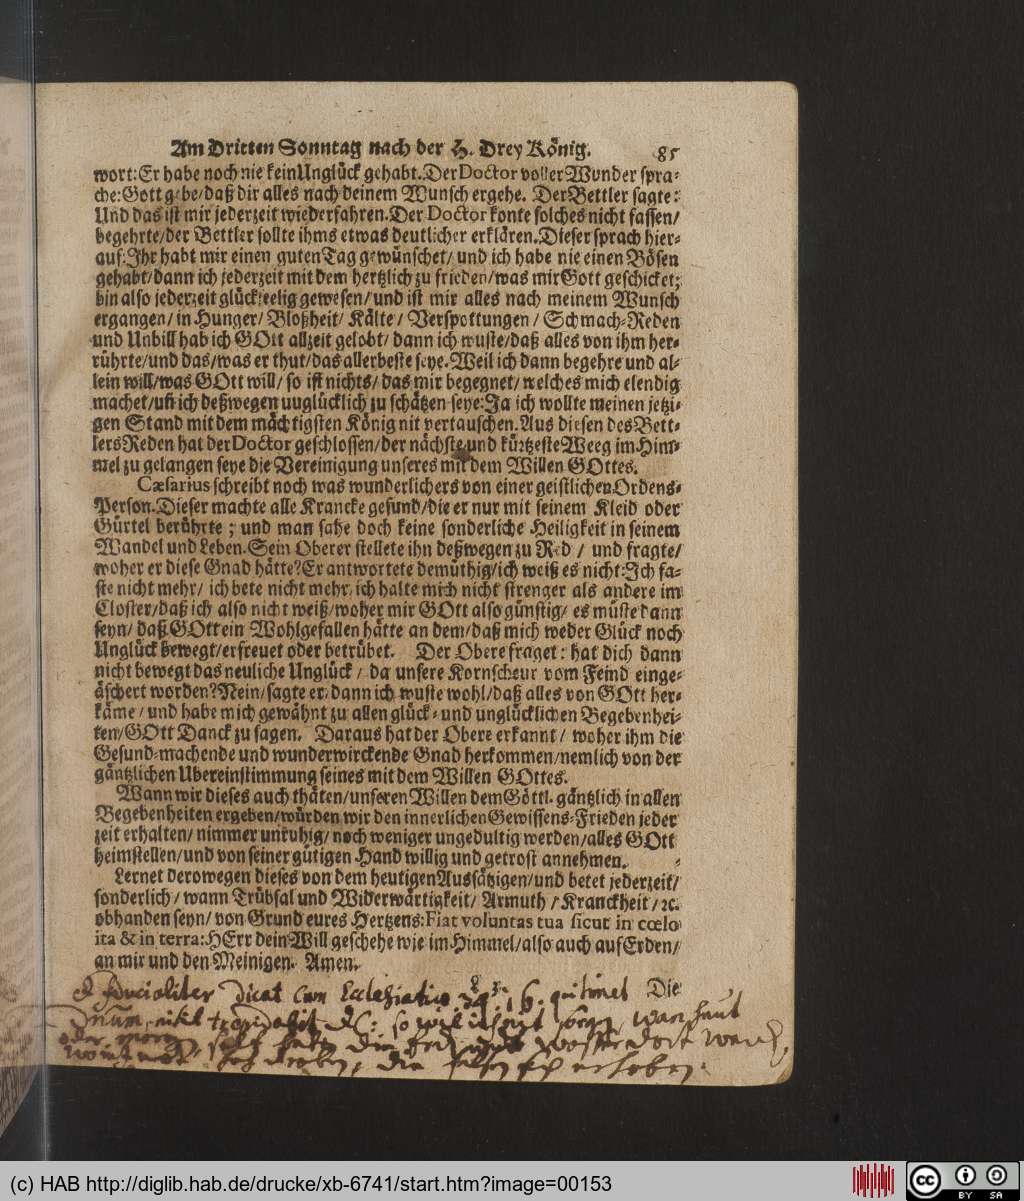 Am Dritten Sonntag nach der H. Drey König. 85
wort: Er habe noch nie kein Unglück gehabt. Der Doctor voller Wunder spra-
che: Gott gebe/ daß dir alles nach deinem Wunsch ergehe. Der Bettler sagte:
Und das ist mir jederzeit wiederfahren. Der Doctor konte solches nicht fassen/
begehrte/ der Bettler sollte ihms etwas deutlicher erklären. Dieser sprach hier-
auf: Ihr habt mir einen guten Tag gewünschet/ und ich habe nie einen Bösen
gehabt/ dann ich jederzeit mit dem hertzlich zu frieden/ was mir Gott geschicket;
bin also jederzeit glückseelig gewesen/ und ist mir alles nach meinem Wunsch
ergangen/ in Hunger/ Bloßheit/ Kälte/ Verspottungen/ Schmach-Reden
und Unbill hab ich GOtt allzeit gelobt/ dann ich wuste/ daß alles von ihm her-
rührte/ und das/ was er thut/ das allerbeste seye. Weil ich dann begehre und al-
lein will/ was GOtt will/ so ist nichts/ das mir begegnet/ welches mich elendig
machet/ uñ ich deßwegen uuglücklich zu schätzen seye: Ja ich wollte meinen jetzi-
gen Stand mit dem mächtigsten König nit vertauschen. Aus diesen des Bett-
lers Reden hat der Doctor geschlossen/ der nächste und kürtzeste Weeg im Him-
mel zu gelangen seye die Vereinigung unseres mit dem Willen GOttes.
Cæsarius schreibt noch was wunderlichers von einer geistlichen Ordens-
Person. Dieser machte alle Krancke gesund/ die er nur mit seinem Kleid oder
Gürtel berührte; und man sahe doch keine sonderliche Heiligkeit in seinem
Wandel und Leben. Sein Oberer stellete ihn deßwegen zu Red/ und fragte/
woher er diese Gnad hätte? Er antwortete demüthig/ ich weiß es nicht: Ich fa-
ste nicht mehr/ ich bete nicht mehr/ ich halte mich nicht strenger als andere im
Closter/ daß ich also nicht weiß/ woher mir GOtt also günstig/ es müste dann
seyn/ daß GOtt ein Wohlgefallen hätte an dem/ daß mich weder Glück noch
Unglück bewegt/ erfreuet oder betrübet. Der Obere fraget: hat dich dann
nicht bewegt das neuliche Unglück/ da unsere Kornscheur vom Feind einge-
äschert worden? Nein/ sagte er/ dann ich wuste wohl/ daß alles von GOtt her-
käme/ und habe mich gewähnt zu allen glück- und unglücklichen Begebenhei-
ten/ GOtt Danck zu sagen. Daraus hat der Obere erkannt/ woher ihm die
Gesund-machende und wunderwirckende Gnad herkommen/ nemlich von der
gäntzlichen Ubereinstimmung seines mit dem Willen GOttes.
Wann wir dieses auch thäten/ unseren Willen dem Göttl. gäntzlich in allen
Begebenheiten ergeben/ würden wir den innerlichen Gewissens-Frieden jeder
zeit erhalten/ nimmer unruhig/ noch weniger ungedultig werden/ alles GOtt
heimstellen/ und von seiner gütigen Hand willig und getrost annehmen.
Lernet derowegen dieses von dem heutigen Aussätzigen/ und betet jederzeit/
sonderlich/ wann Trübsal und Widerwärtigkeit/ Armuth/ Kranckheit/ ꝛc.
obhanden seyn/ von Grund eures Hertzens: Fiat voluntas tua sicut in cœlo
ita & in terra: HErr dein Will geschehe wie im Himmel/ also auch auf Erden/
an mir und den Meinigen. Amen.
Die
dicat cum Ecclesiastico qui timet
(c) HAB http://diglib.hab.de/drucke/xb-6741/start.htm?image=00153
cc BY SA